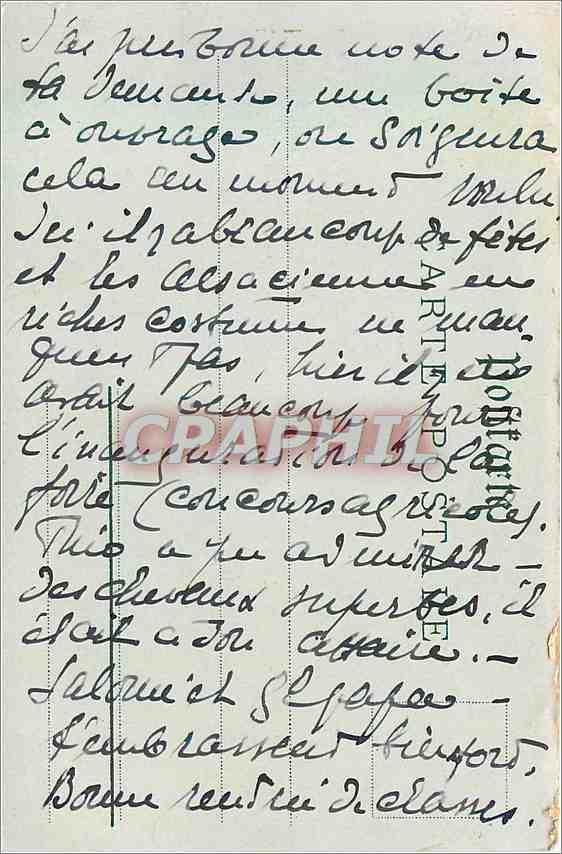 J'ai pris bonne note de
ta demande, une boite
à ouvrage, on soignera
cela au moment voulu
Ici il y a beaucoup de fêtes
et les Alsaciennes en
riches costumes ne man-
quent pas, hier il y en
avait beaucoup pour
l'inauguration de la
foire (concours agricoles).
a pu admirer -
des chevaux superbes, il
était à son affaire. -
et -
t'embrassent bien fort.
Bonne rentrée de classes.
CARTE POSTALE
Postkarte
CRAPHIL